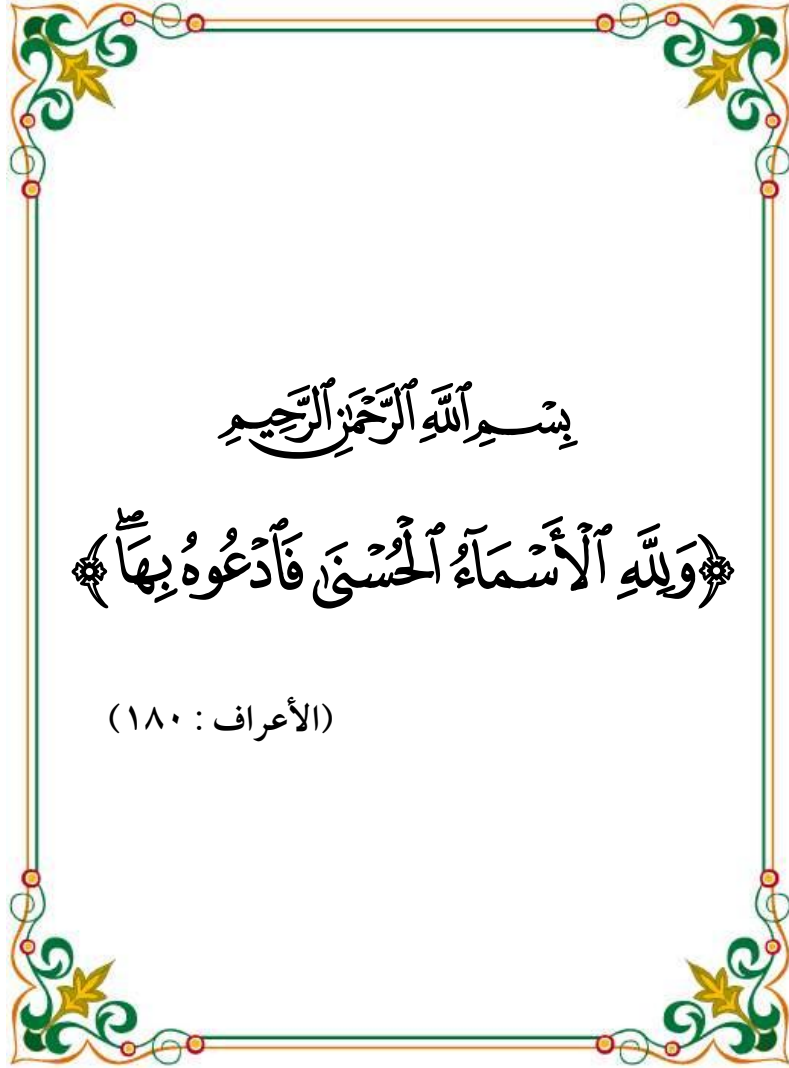 بِسْمِ ٱللَّهِ ٱلرَّحْمَٰنِ ٱلرَّحِيمِ
﴿وَلِلَّهِ ٱلْأَسْمَآءُ ٱلْحُسْنَىٰ فَٱدْعُوهُ بِهَاۖ﴾
(الأعراف : ١٨٠)